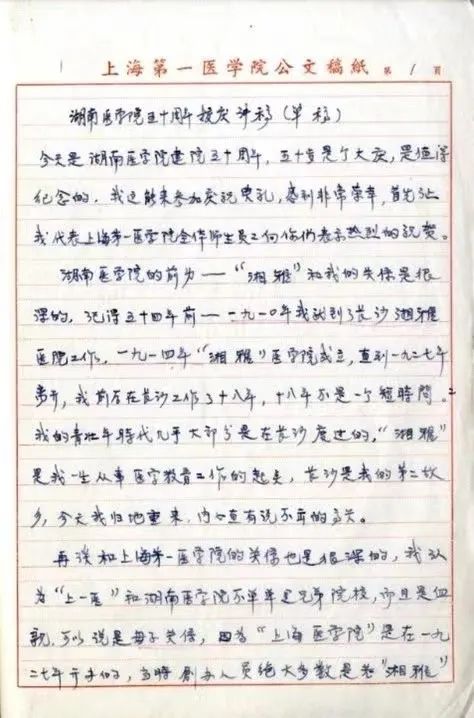 上海第一医学院公文稿紙 第 1 頁
湖南医学院五十周年校庆讲稿（草稿）
今天是湖南医学院建院五十周年，五十岁是个大庆，是值得
纪念的。我这能来参加庆祝典礼，感到非常荣幸，首先让
我代表上海第一医学院全体师生员工向你们表示热烈的祝贺。
湖南医学院的前身——“湘雅”和我的关係是很
深的，记得五十四年前——一九一〇年我就到了长沙湘雅
医院工作。一九一四年“湘雅”医学院成立，直到一九二七年
离开，我前后在长沙工作了十八年，十八年不是一个短時間。
我的青壮年時代几乎大部分是在长沙度过的，“湘雅”
是我一生从事医学教育工作的起点，长沙是我的第二故
乡，今天我归地重来，内心有说不出的高兴。
再谈和上海第一医学院的关係也是很深的，我认
为“上一医”和湖南医学院不单单是兄弟院校，而且是血
親，可以说是母子关係，因为“上海医学院”是在一九
二七年开办的，当時創办人员绝大多数是老“湘雅”